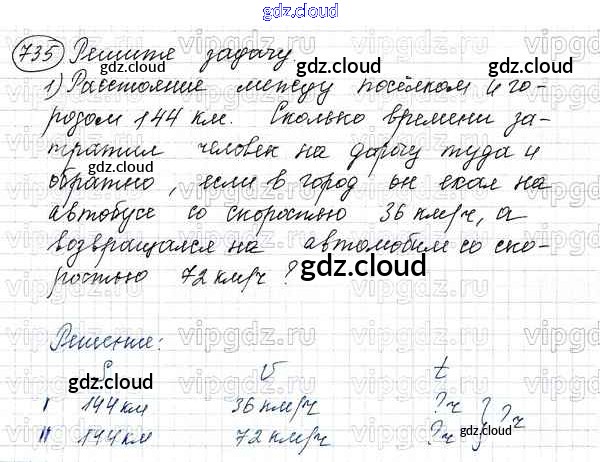 gdz.cloud
735 Решите задачу
gdz.cloud
1) Расстояние между посёлком и го-
родом 144 км. Сколько времени за-
тратил человек на дорогу туда и
обратно, если в город он ехал на
автобусе со скоростью 36 км/ч, а
возвращался на автомобиле со ско-
ростью 72 км/ч?
gdz.cloud
Решение:
S V t
gdz.cloud
I 144 км 36 км/ч ?ч } ?ч
II 144 км 72 км/ч ?ч
gdz.cloud